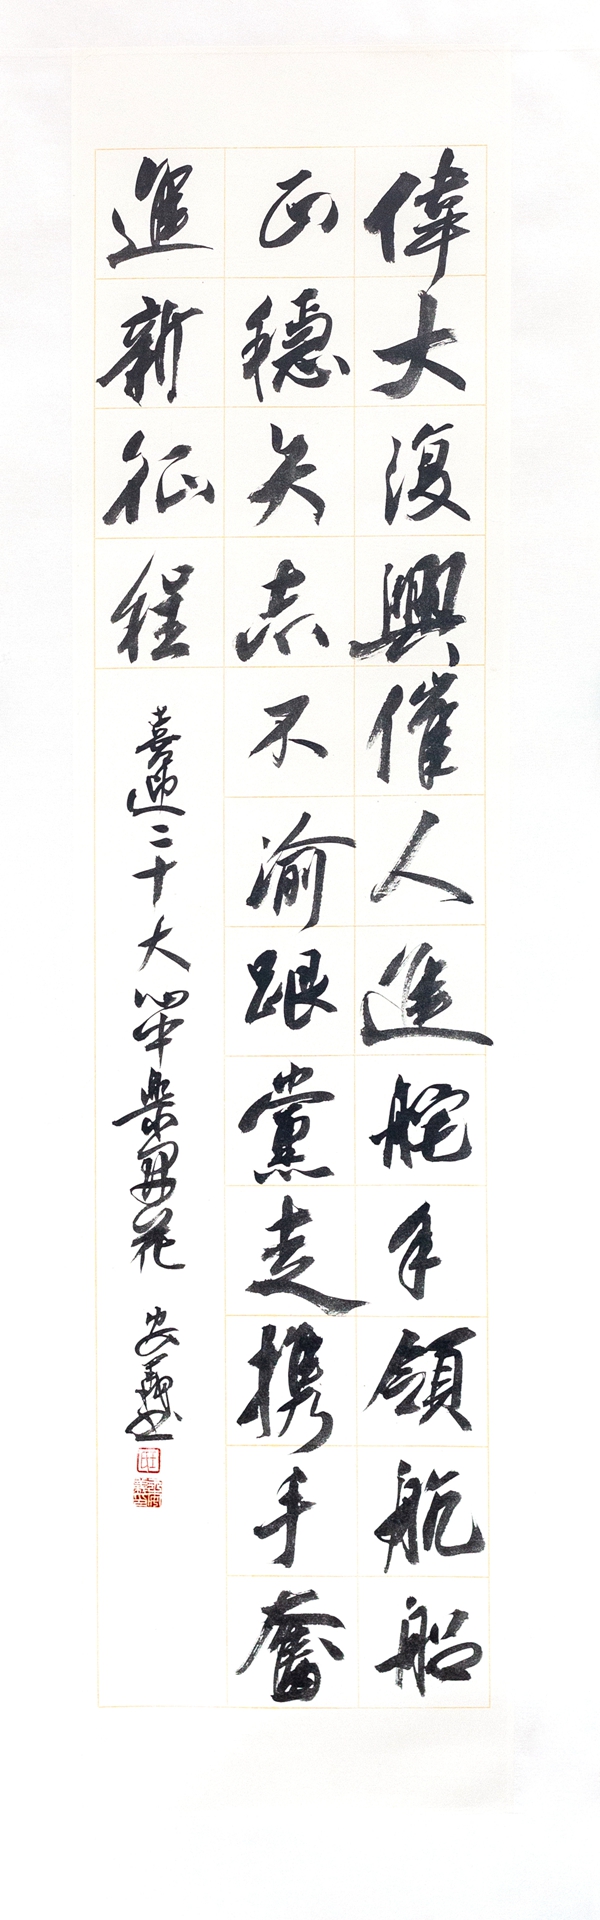 偉大復興催人進舵手領航船
正穩矢志不渝跟黨走携手奮
進新征程
喜迎二十大心中樂開花
安華书